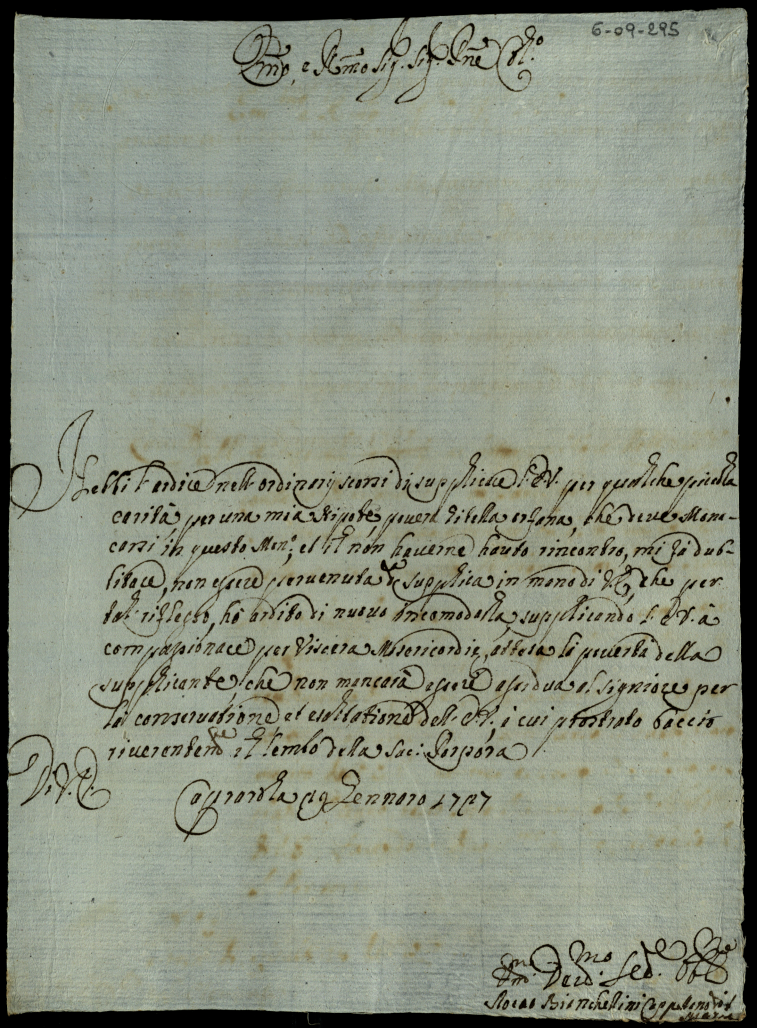 6-09-295
Emo, e Rmo Sig. Sig. Pne Col.o
Hebbi l'ardire nell'ordinarij scorsi di supplicare l'E.V. per qualche piccola
carità per una mia Nipote, povera Zitella orfana, che deve Mona-
carsi in questo Mon:, et il non haverne hauto rincontro, mi fà dub-
bitare, non essere pervenuta la supplica in mano di V.E., che per
tal riflesso, hò ardito di nuovo incomodarla, supplicando l'E.V. à
compassionare per Viscera Misericordiæ, attesa la povertà della
supplicante, che non mancarà essere assidua al Signiore per
la conservatione et esaltatione dell'E.V., à cui prostrato baccio
riverenteme il lembo della Sac: Porpora
Di V.E. Caprarola 19 Gennaro 1727
Umo Devmo Sere Obbmo
Rocco Bianchellini Cappellano